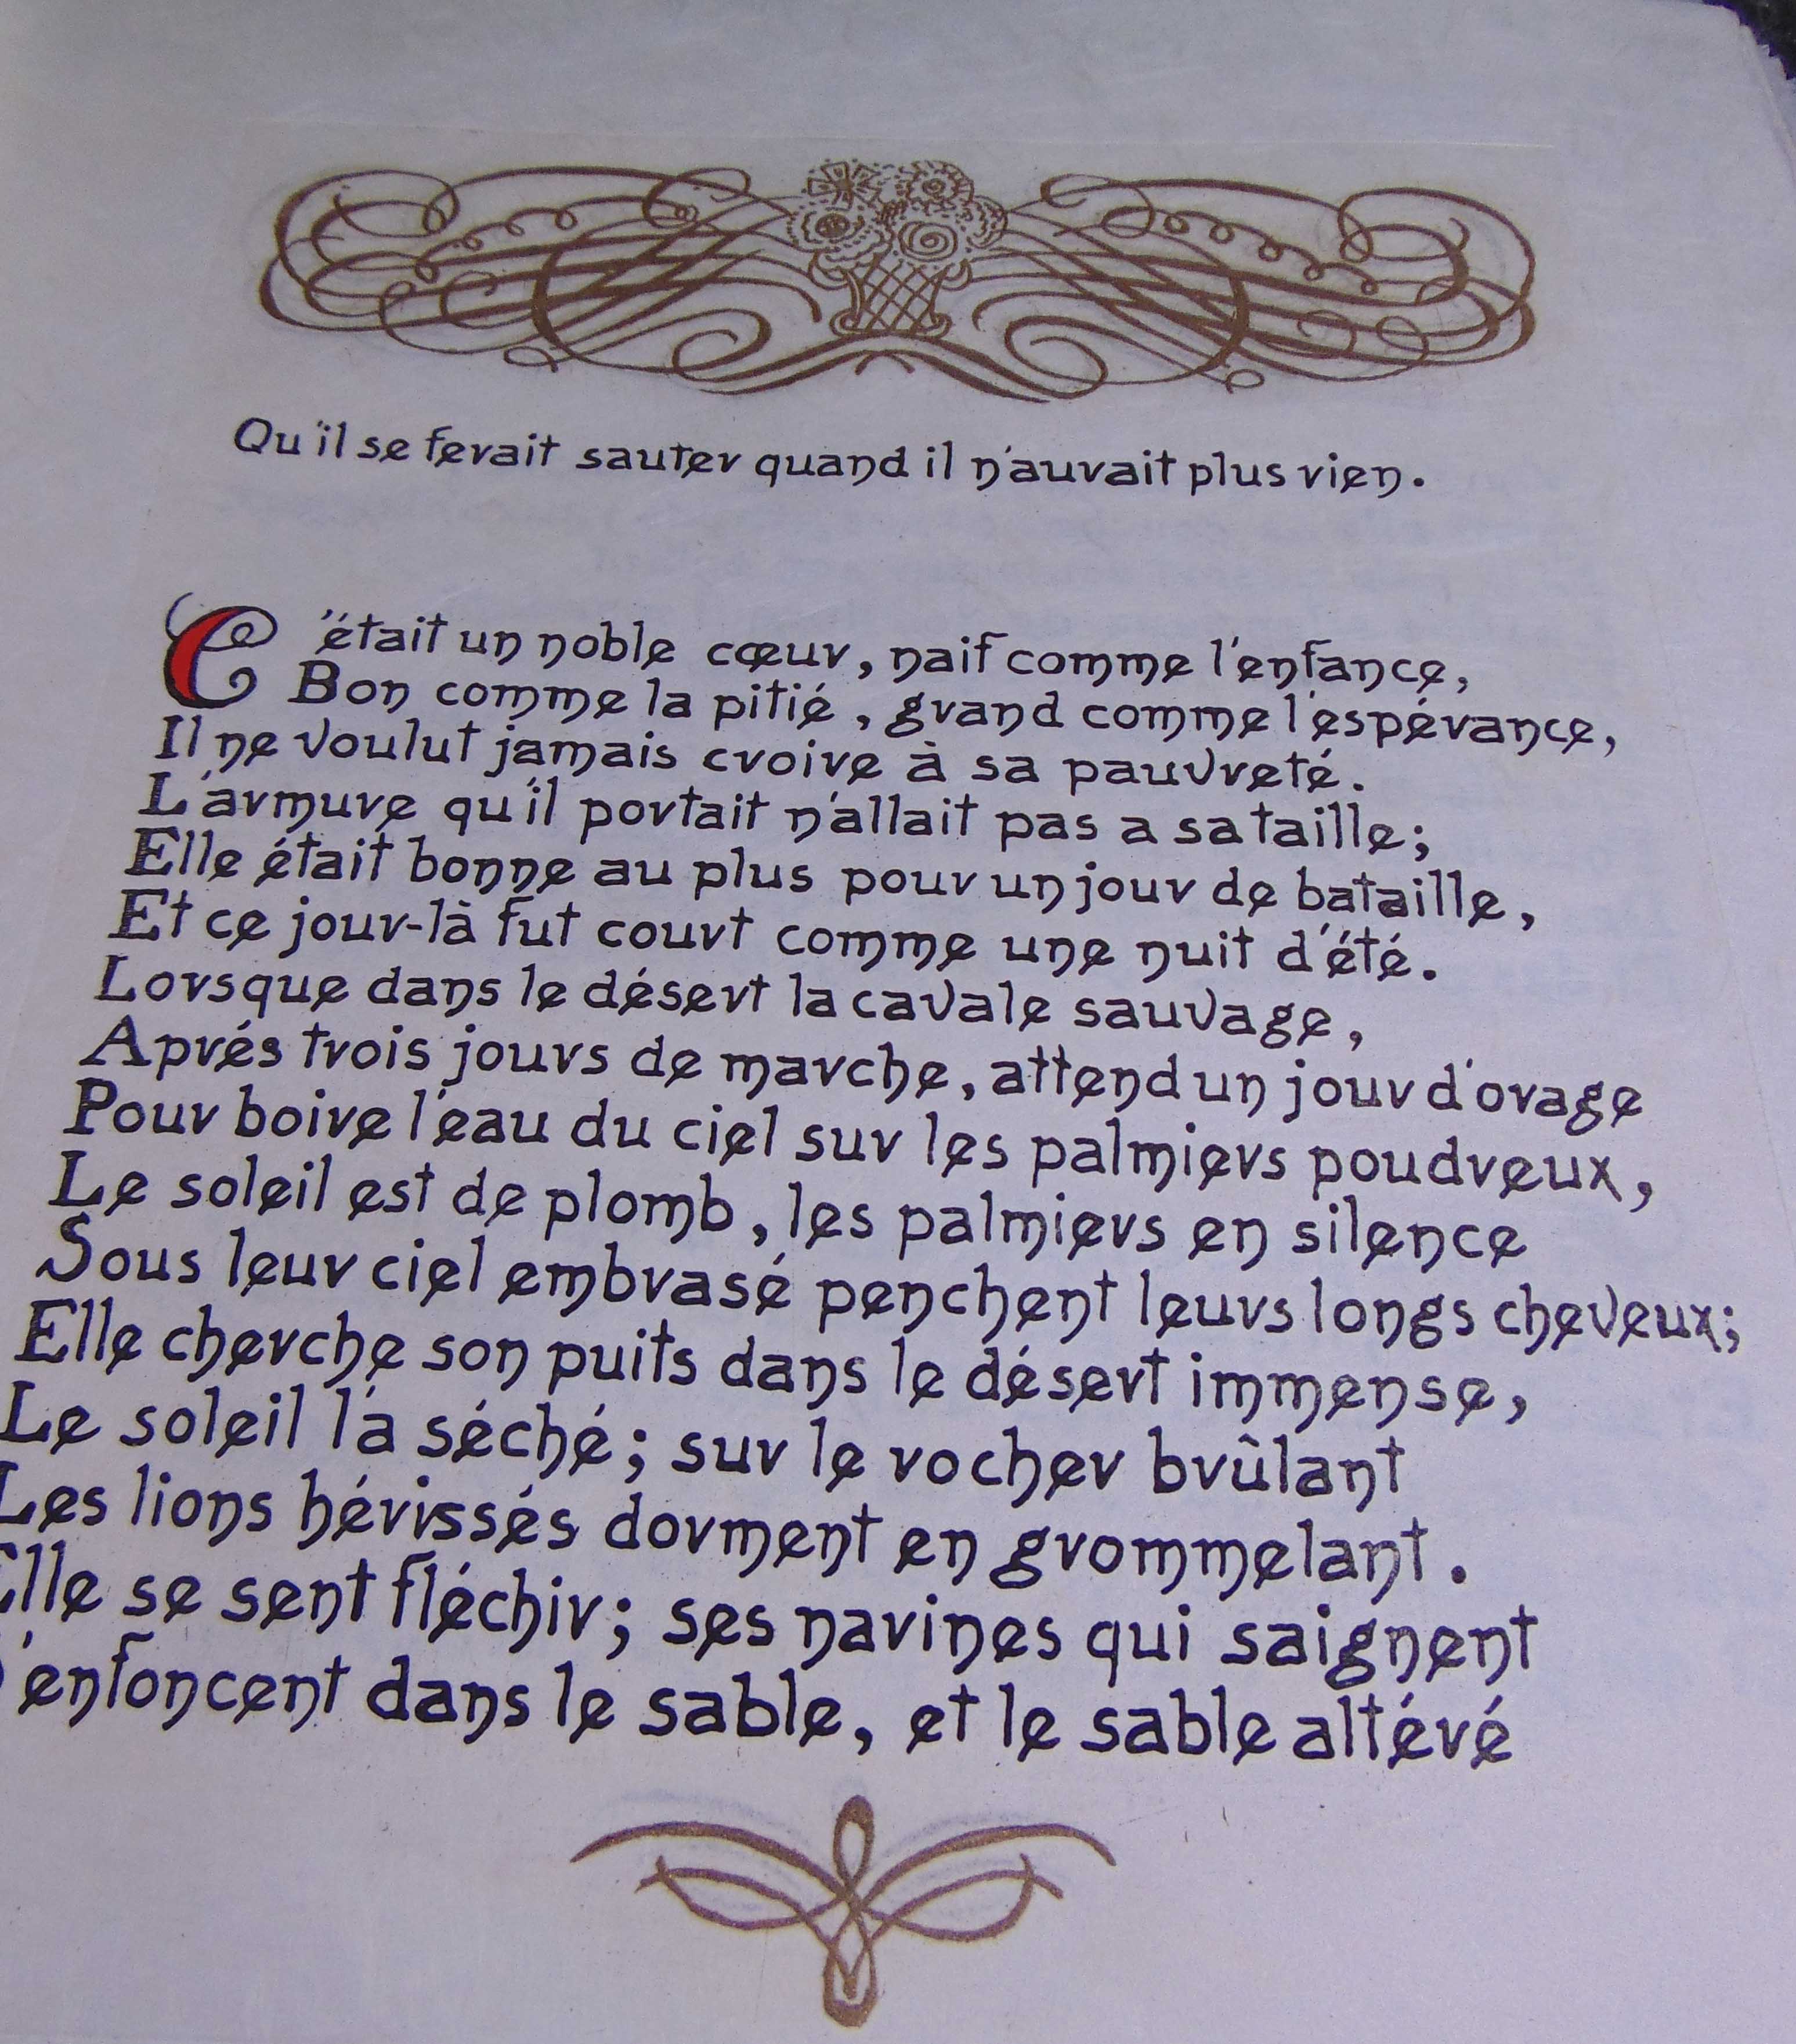 Qu'il se ferait sauter quand il n'aurait plus rien.
C'était un noble cœur, naif comme l'enfance,
Bon comme la pitié, grand comme l'espérance,
Il ne voulut jamais croire à sa pauvreté.
L'armure qu'il portait n'allait pas a sa taille;
Elle était bonne au plus pour un jour de bataille,
Et ce jour-là fut court comme une nuit d'été.
Lorsque dans le désert la cavale sauvage,
Aprés trois jours de marche, attend un jour d'orage
Pour boire l'eau du ciel sur les palmiers poudreux,
Le soleil est de plomb, les palmiers en silence
Sous leur ciel embrasé penchent leurs longs cheveux;
Elle cherche son puits dans le désert immense,
Le soleil l'a séché; sur le rocher brûlant
Les lions hérissés dorment en grommelant.
Elle se sent fléchir; ses narines qui saignent
'enfoncent dans le sable, et le sable altéré